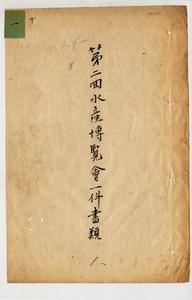 第二回水産博覧會一件書類
一